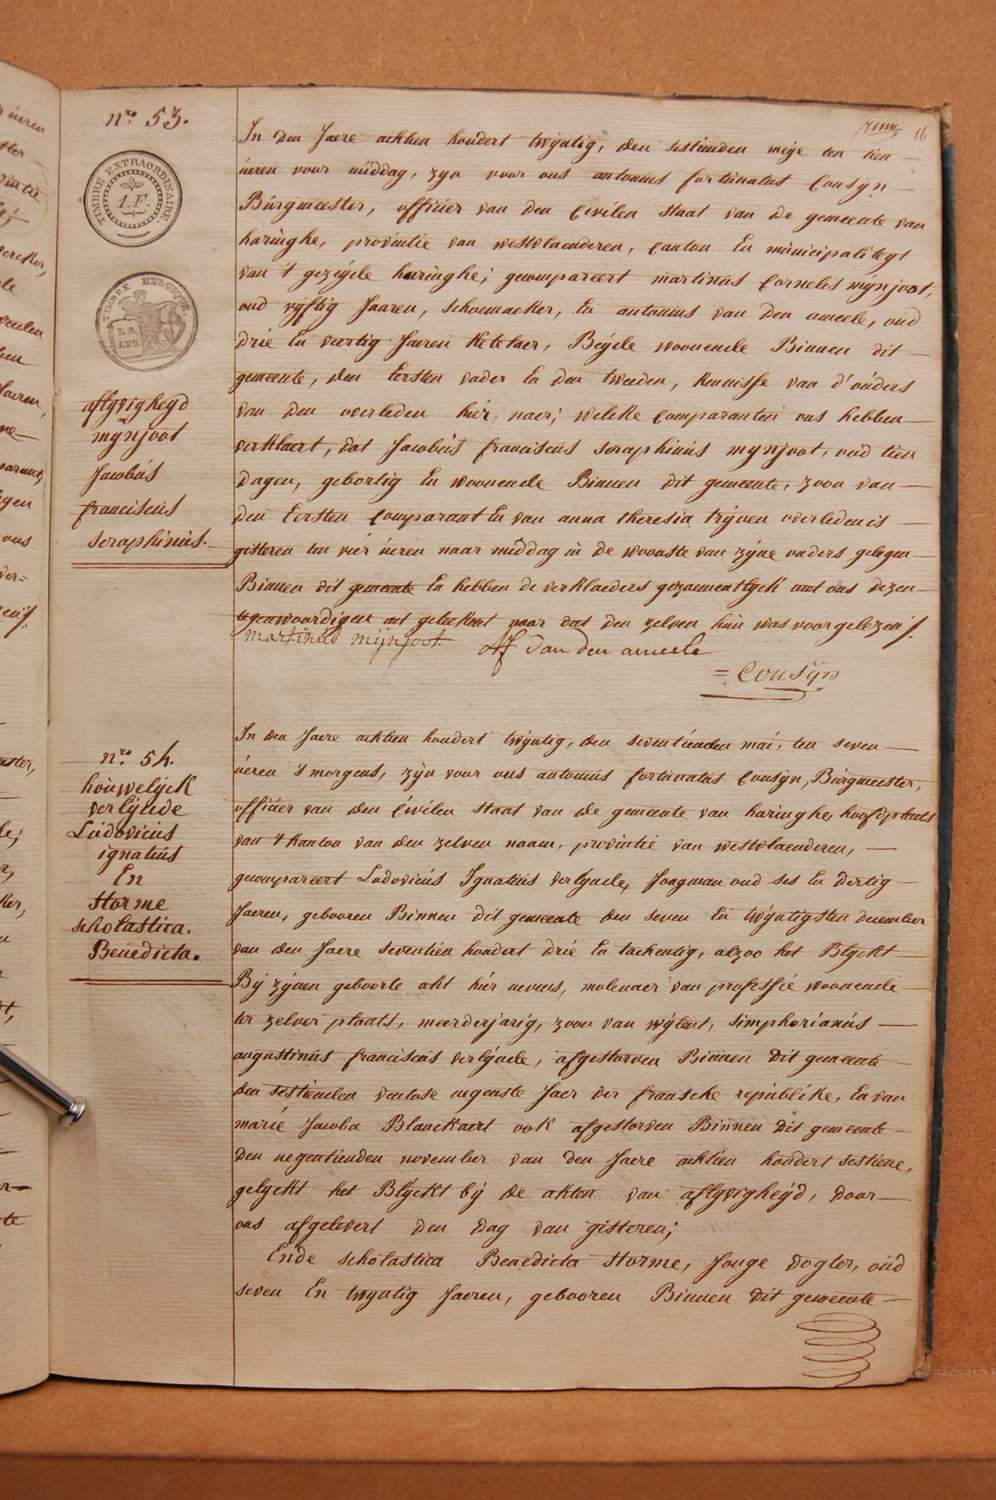 16
nro 53.
TIMBRE EXTRAORDINAIRE
1.F.
TIMBRE BELGIQUE
LA
LYS
aflyvigheyd
mynjoot
Jacobús
franciscús
seraphinús.
In den Jaere achtien hondert twyntig, den sestienden meije ten tien
úeren voor middag, zyn voor ons antoniús fortúnatús Cousyn
Búrgmeester, officier van den Civilen staat van de gemeente van
haringhe, provintie van westvlaenderen, Canton En múnicipaliteyt
van 't gezeyde haringhe; gecompareert martinús Cornelis mynjoot,
oud vyftig Jaaren, schoemaeker, En antoniús van den ameele, oud
drie En veertig Jaeren Ketelaer, Beyde woonende Binnen dit
gemeente, den Eersten vader En den tweeden, Kennisse van d'oúders
van den overleden hier naer; welcke Comparanten ons hebben
verklaert, dat Jacobús franciscús seraphinús mynjoot, oud tien
dagen, gebortig En woonende Binnen dit gemeente, zoon van
den Eersten Comparant En van anna theresia tryoen overleden is
gisteren ten vier úeren naar middag in de wooniste van zyne ouders gelegen
Binnen dit gemeente En hebben de verklaeders gezaementlyck met ons dezen
tegenwoordigen act geteekent naar dat den zelven hún was voorgelezen ./.
martinus mijnjoot. AF Van den ameele
= Cousÿn
nro 54.
hoúwelyck
verlyúde
Lúdovicús
ignatiús
En
Storme
scholastica.
Benedicta.
In den Jaere achtien hondert twyntig, den seventienden mai, ten seven
úeren 's morgens, zyn voor ons antoniús fortúnatús Cousyn, Búrgmeester,
officier van den Civilen staat van de gemeente van haringhe, hoofdplaets
van 't Kanton van den zelven naam, provintie van westvlaenderen,
gecompareert Ludovicús Ignatiús verlyúde, Jongman oud ses En dertig
Jaeren, gebooren Binnen dit gemeente den seven En twyntigsten december
van den Jaere seventien hondert drie En tachentig, alzoo het Blyckt
By zynen geboorte akt hier nevens, molenaer van professie woonende
ter zelver plaats, meerderjarig, zoon van wylent, simphorianús
augustinús franciscús verlyúde, afgestorven Binnen dit gemeente
den sestienden ventose negenste Jaer der fransche repúblike, En van
marie Jacoba Blanckaert ook afgestorven Binnen dit gemeente
den negentienden november van den Jaere achtien hondert sestiene,
gelyckt het Blyckt by de akten van aflyvigheyd, door
ons afgelevert den dag van gisteren;
Ende scholastica Benedicta storme, Jonge dogter, oúd
seven En twyntig Jaeren, gebooren Binnen dit gemeente